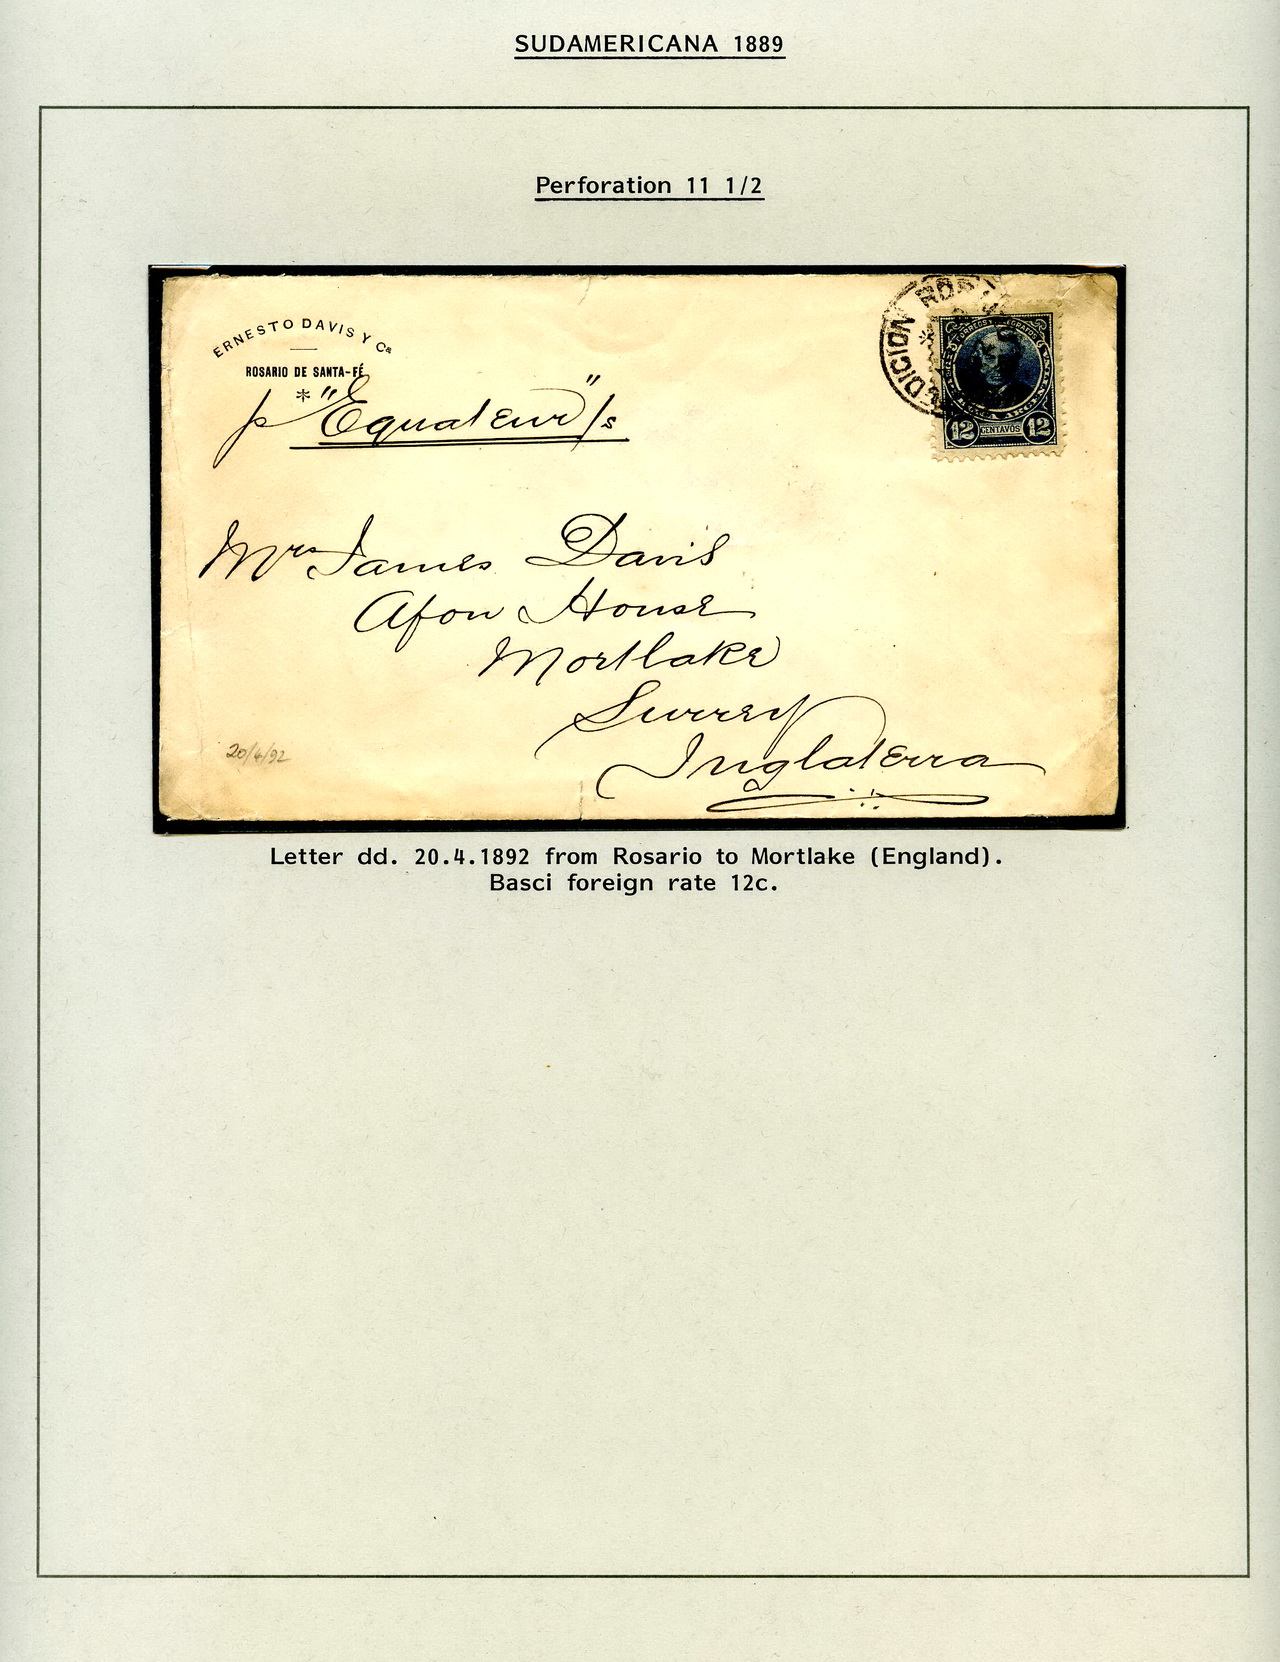 SUDAMERICANA 1889
Perforation 11 1/2
ERNESTO DAVIS Y Ca
ROSARIO DE SANTA-FÉ
p "Equateur" /s
EDICION ROS
CORREOS Y
12 CENTAVOS 12
Mrs James Davis
Afon House
Mortlake
Surrey
Inglaterra
20/4/92
Letter dd. 20.4.1892 from Rosario to Mortlake (England).
Basci foreign rate 12c.